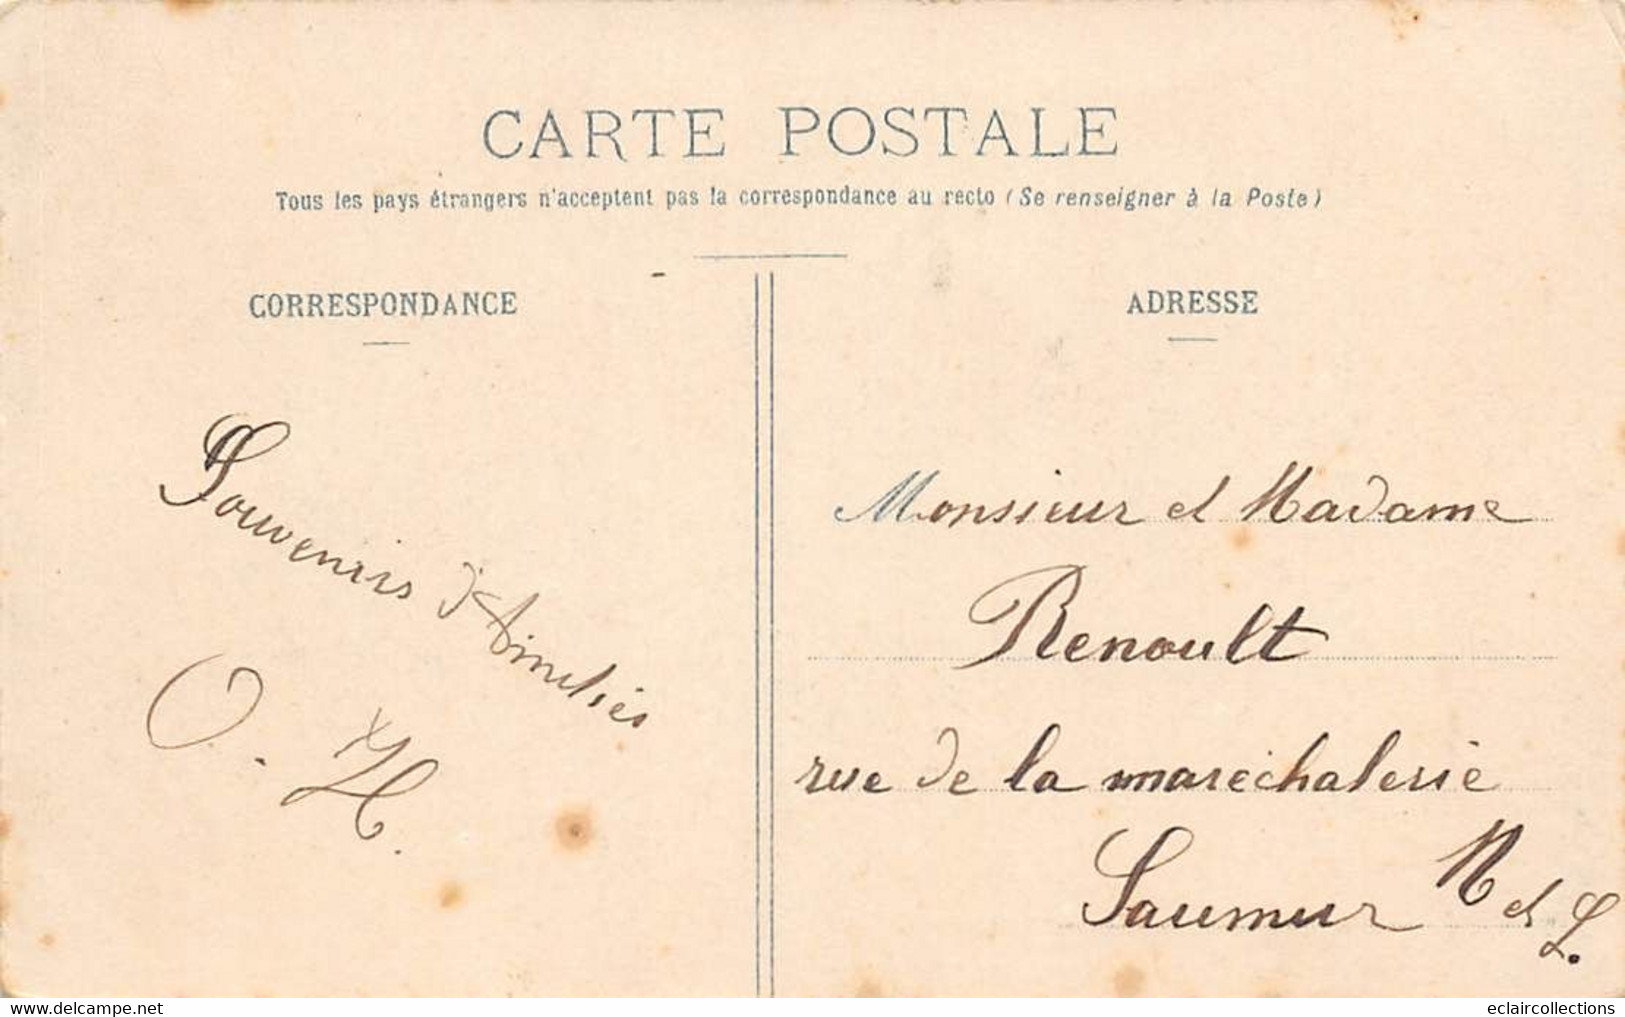 CARTE POSTALE
Tous les pays étrangers n'acceptent pas la correspondance au recto (Se renseigner à la Poste)
CORRESPONDANCE
ADRESSE
Souvenirs d'Amitiés
O. H.
Monsieur et Madame
Renoult
rue de la marechalerie
Saumur M et L.
delcampe.net
eclaircollections